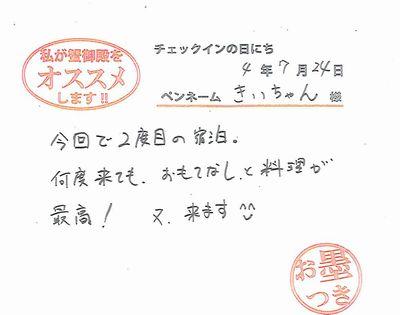 私が蟹御殿を
オススメ
します!!
チェックインの日にち
4年7月24日
ペンネーム きいちゃん 様
今回で2度目の宿泊。
何度来ても、おもてなしと料理が
最高! 又、来ます
お墨
つき